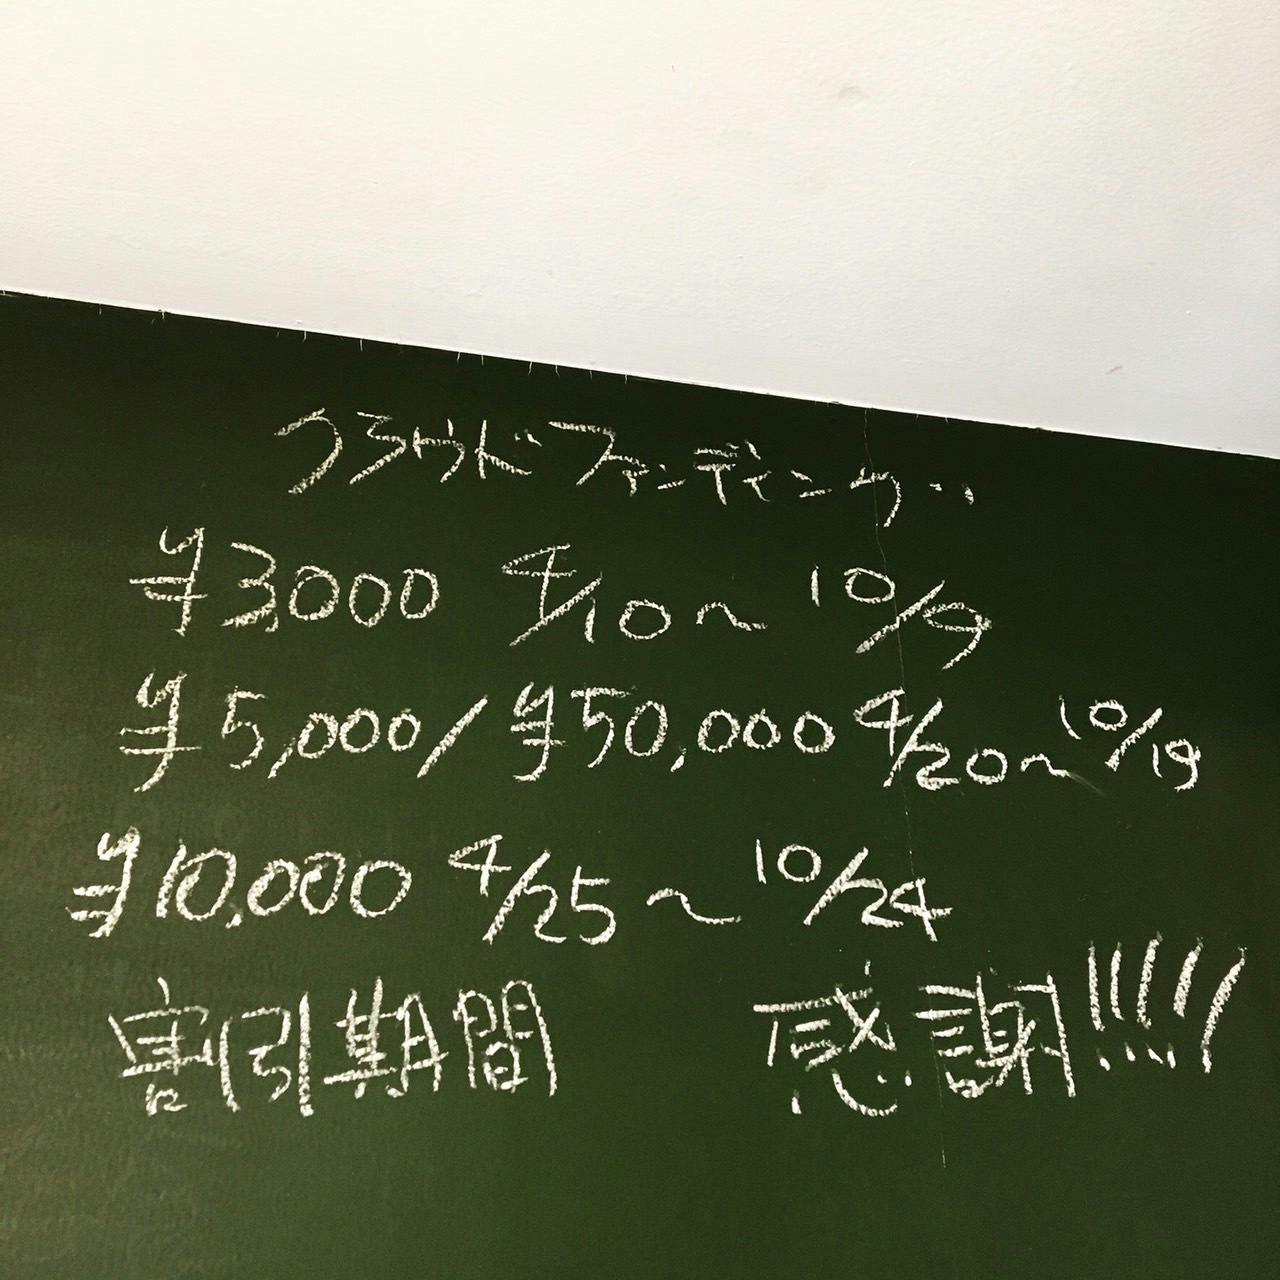 クラウドファンディング
¥3,000 4/10〜10/9
¥5,000/¥50,000 4/20〜10/19
¥10,000 4/25〜10/24
割引期間 感謝!!!!!